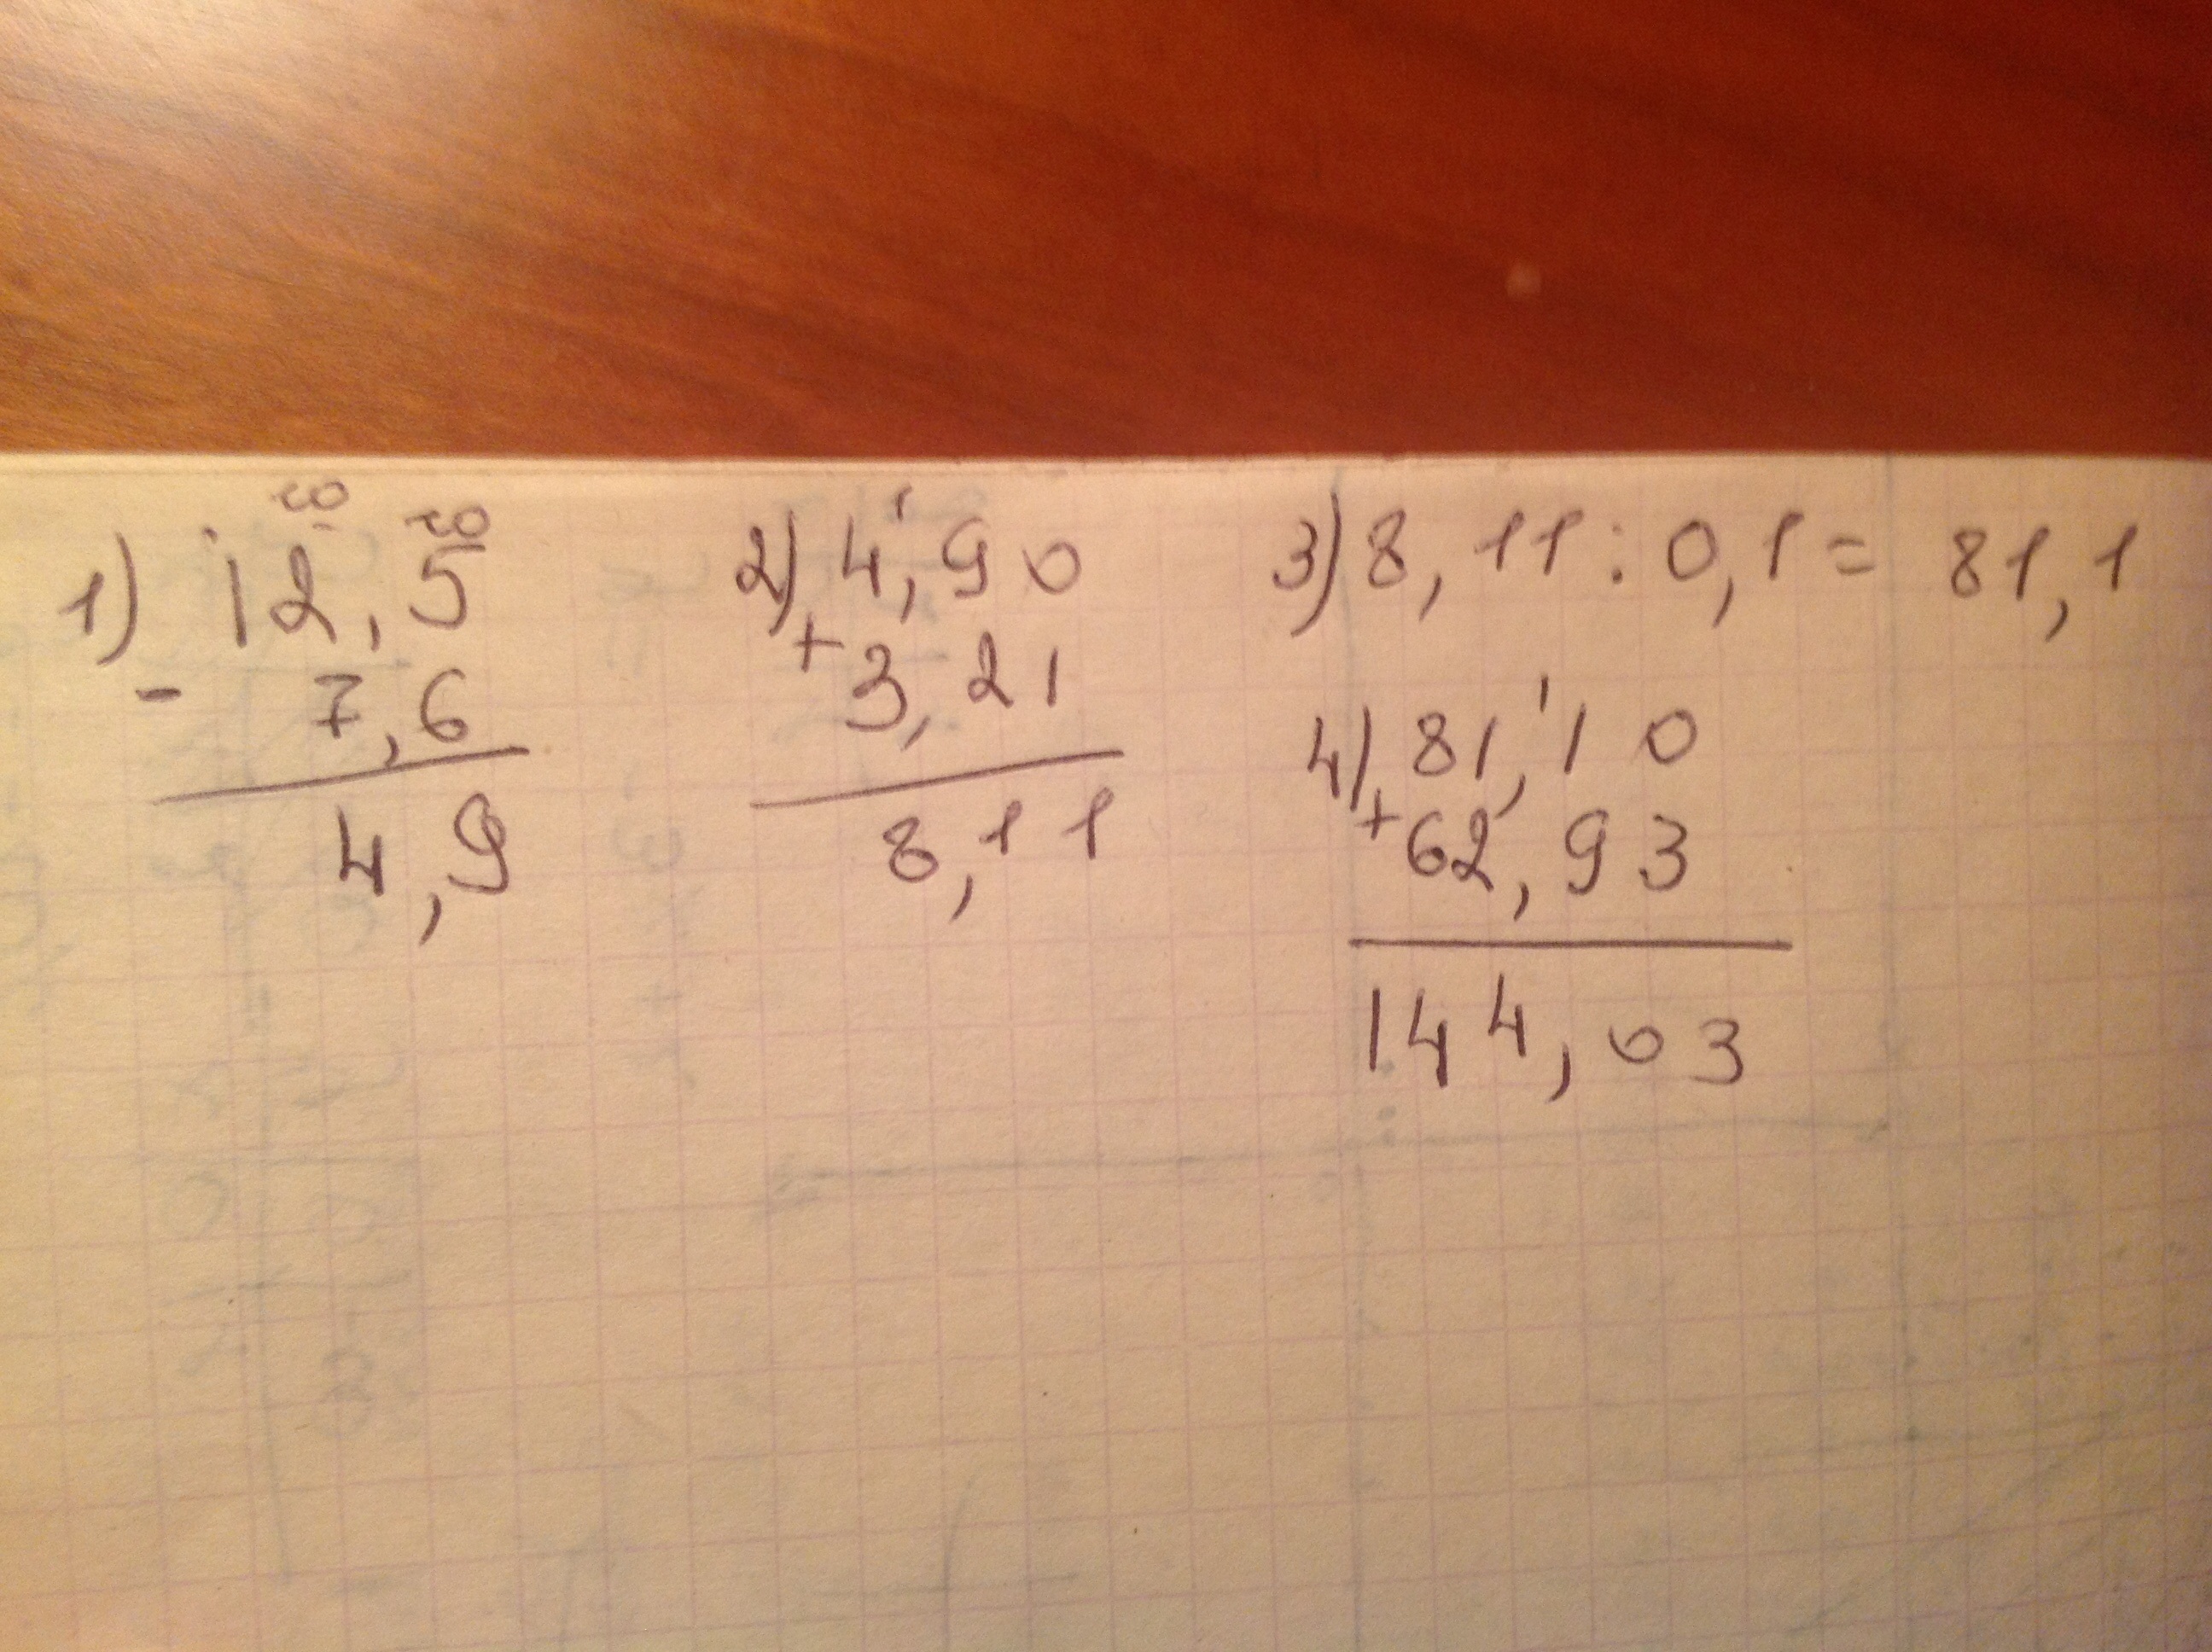 10 10
1) 12,5
- 7,6
4,9
1
2) 4,90
+ 3,21
8,11
3) 8,11 : 0,1 = 81,1
1
4) 81,10
+ 62,93
144,03